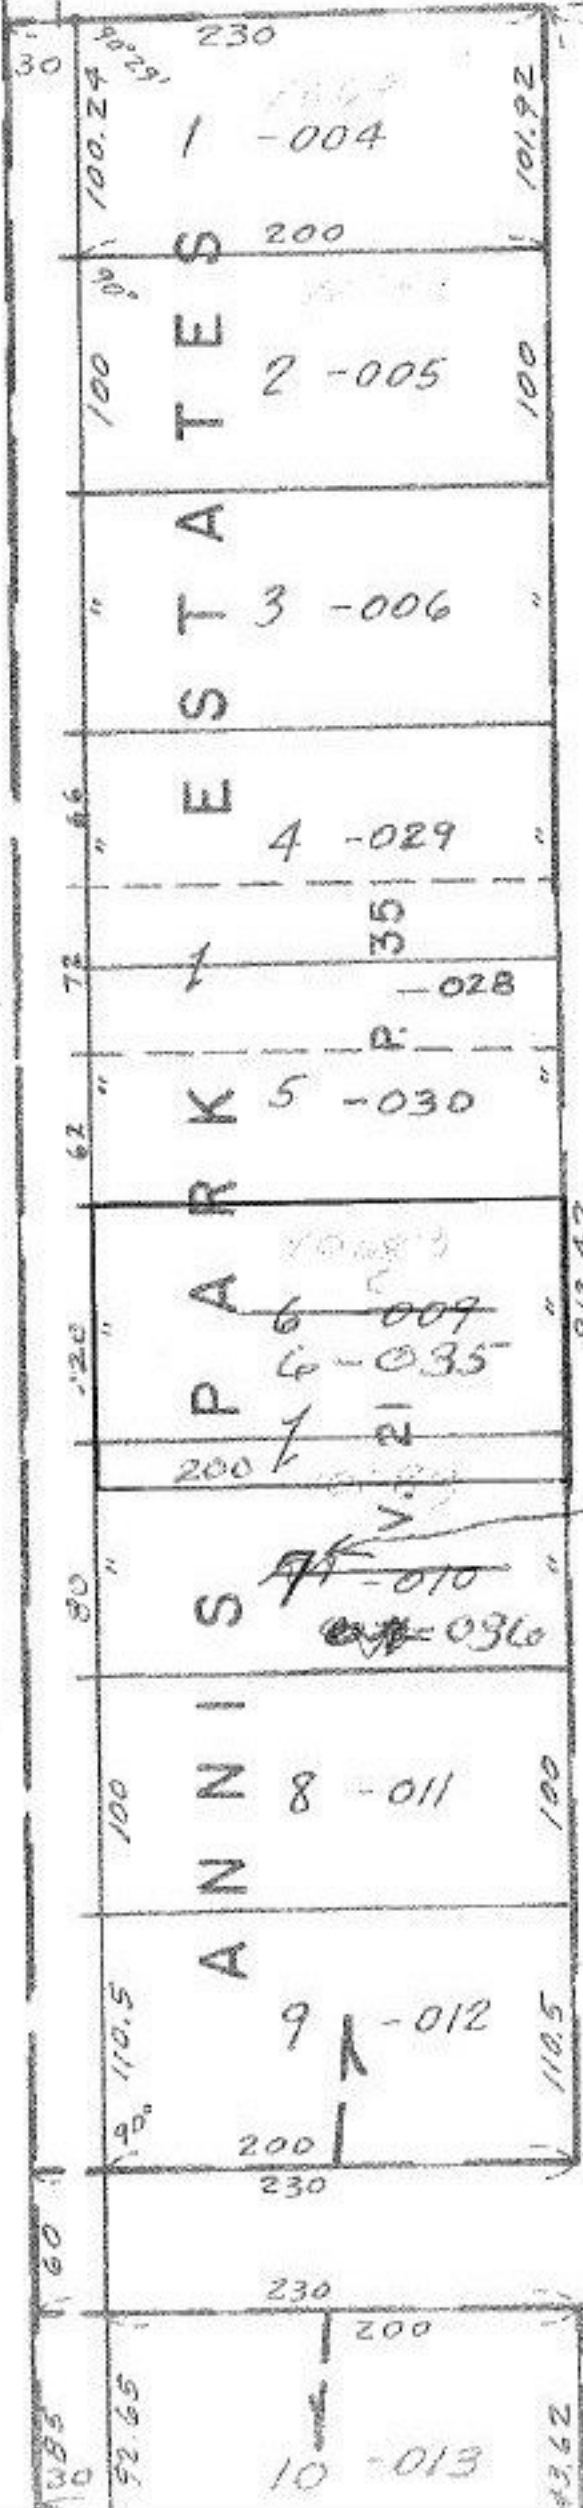 30
90°29'
230
100.24
1 -004
101.92
200
90°
100
2 -005
100
"
3 -006
"
66
"
4 -029
"
72
-028
"
5 -030
"
62
6 -009
6-035
"
"
120
200
80
"
7 -010
-036
"
100
8 -011
100
110.5
9 -012
110.5
90°
200
230
60
230
200
92.65
10 -013
ANNIS PARK ESTATES
V. 21 P. 35